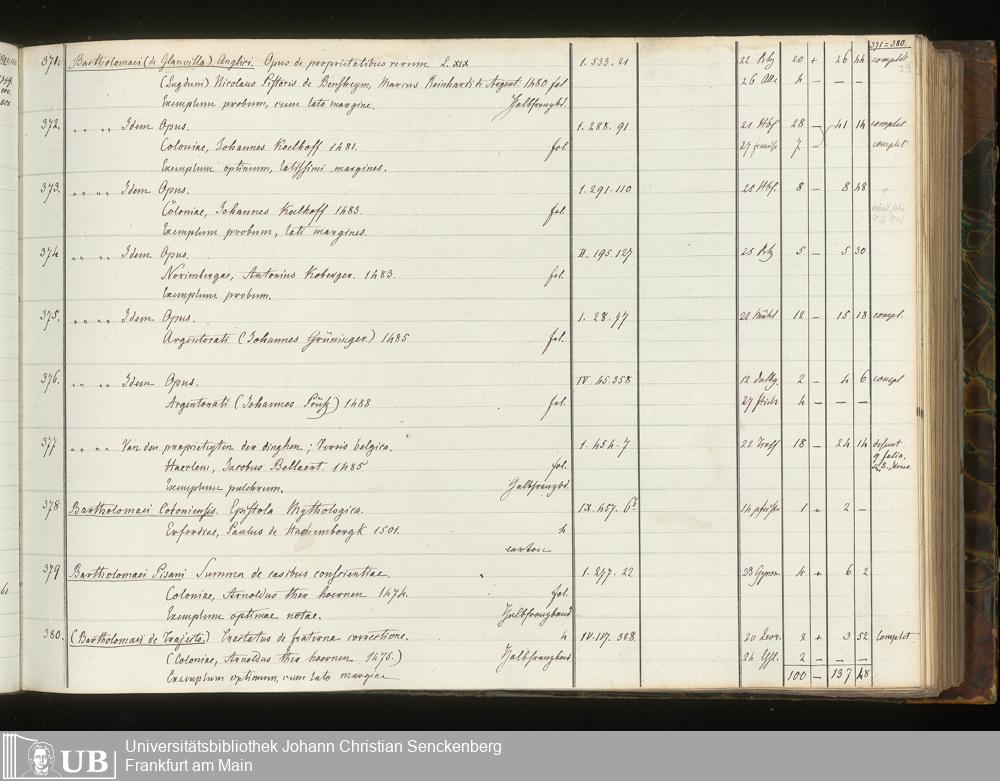 371=380.
371. Bartholomaei (de Glanvilla) Anglici. Opus de proprietatibus rerum L. XIX 1. 533. 21 22 20 + 26 44 complet
(Lugduni) Nicolaus Pistoris de Bensheym, Marcus Reinhardi de Argent. 1480 fol 26 4 — — —
Exemplum probum, cum lato margine. Halbfranzbd.
372. „ „ „ „ Idem Opus. 1. 288. 91 21 Hbf. 28 — 41 14 complet
Coloniae, Johannes Koelhoff 1481. fol 27 7 — complet
Exemplum optimum, latissimi margines.
373. „ „ „ „ Idem Opus. 1. 291. 110 25 Hbf. 8 — 8 48 „
Coloniae, Johannes Koelhoff 1483. fol.
Exemplum probum, lati margines.
374 „ „ „ „ Idem Opus. II. 195. 127 25 5 — 5 30
Norimbergae, Antonius Koberger. 1483. fol.
Exemplum probum.
375. „ „ „ „ Idem Opus. 1. 28. 97 22 12 — 15 18 compl.
Argentorati (Johannes Grüninger.) 1485 fol.
376. „ „ „ „ Idem Opus. IV. 45. 358 12 Dalbg. 2 — 4 6 compl
Argentorati (Johannes Prüß) 1488 fol. 27 4 — — —
377 „ „ „ „ Van den proprieteyten der dinghen; Versio belgica. 1. 454. 7 22 Wolf 18 — 24 14 defunt
Haerlem, Jacobus Bellaert. 1485 fol. 9 folia.
Exemplum pulchrum. Halbfranzbd.
378 Bartholomaei Coloniensis. Epistola Mythologica. IX. 457. 14 1 + 2 —
Erfordiae, Paulus de Hachemborgk 1501. 4
carton
379 Bartholomaei Pisani Summa de casibus conscientiae. 1. 277. 22 23 Gymn. 4 + 6 2
Coloniae, Arnoldus ther hoernen 1474. fol.
Exemplum optimae notae. Halbfranzband
380. (Bartholomaei de Trajecto.) Tractatus de fraterna correctione. 4 IV. 117. 368. 20 Leon. 2 + 3 52 Complet
(Coloniae, Arnoldus ther hoernen 1475.) Halbfranzband 24 2 — — —
Exemplum optimum, cum lato margine 100 — 137 48
UB
Universitätsbibliothek Johann Christian Senckenberg
Frankfurt am Main